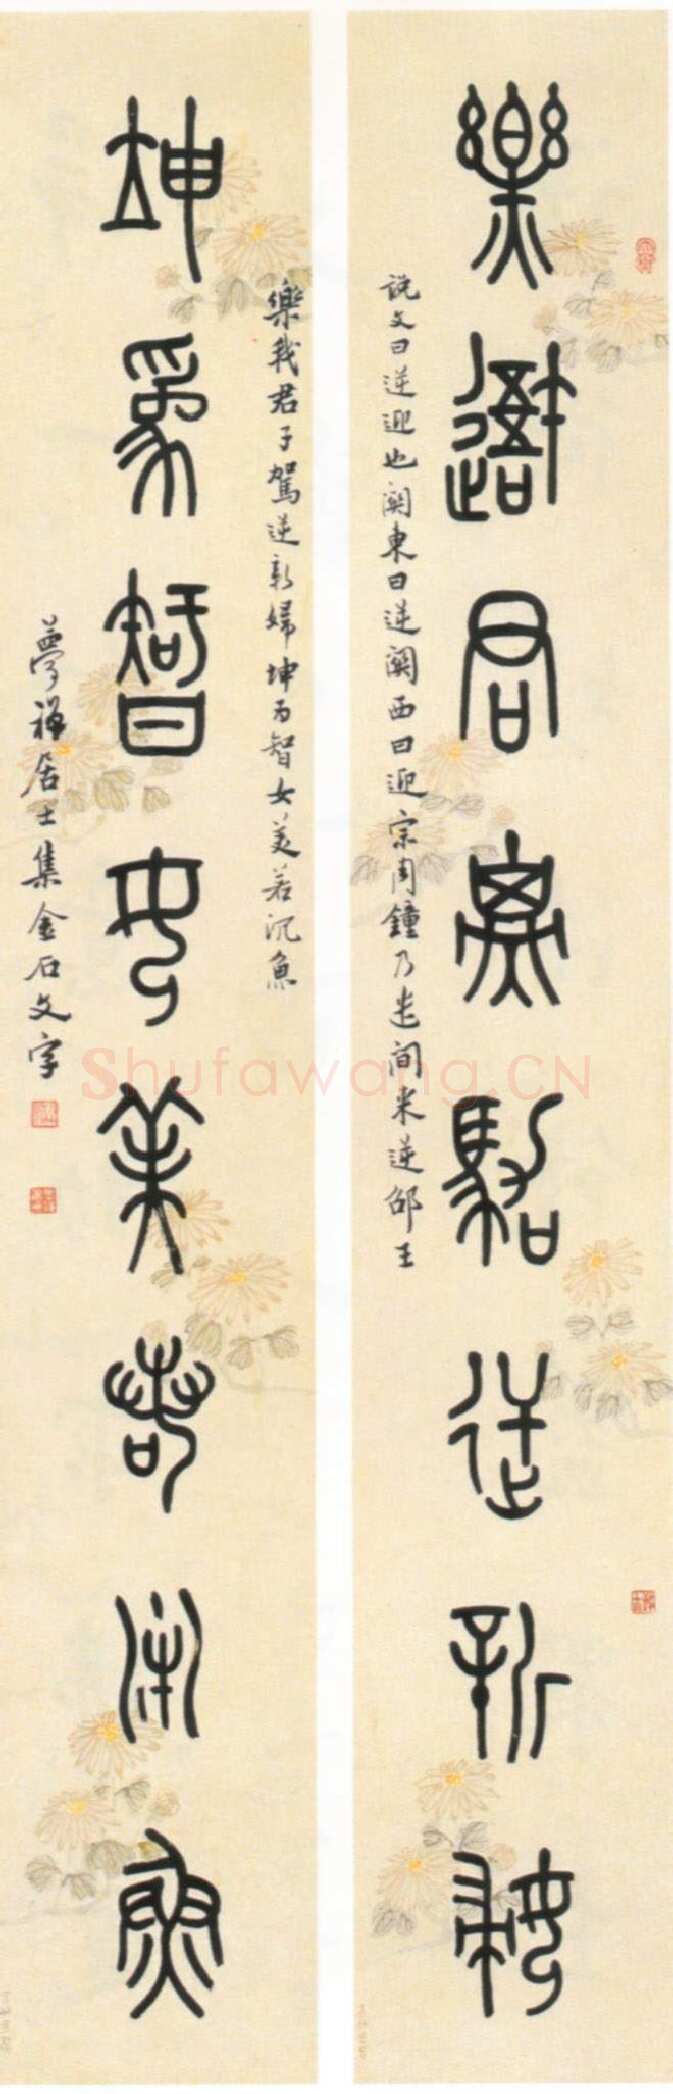 樂我君子駕逆新婦
說文曰逆迎也關東曰逆關西曰迎宗周鐘乃遣间来逆邵王
樂我君子駕逆新婦坤为智女美若沉魚
坤為智女美若沉魚
夢禅居士集金石文字
Shufawang.CN